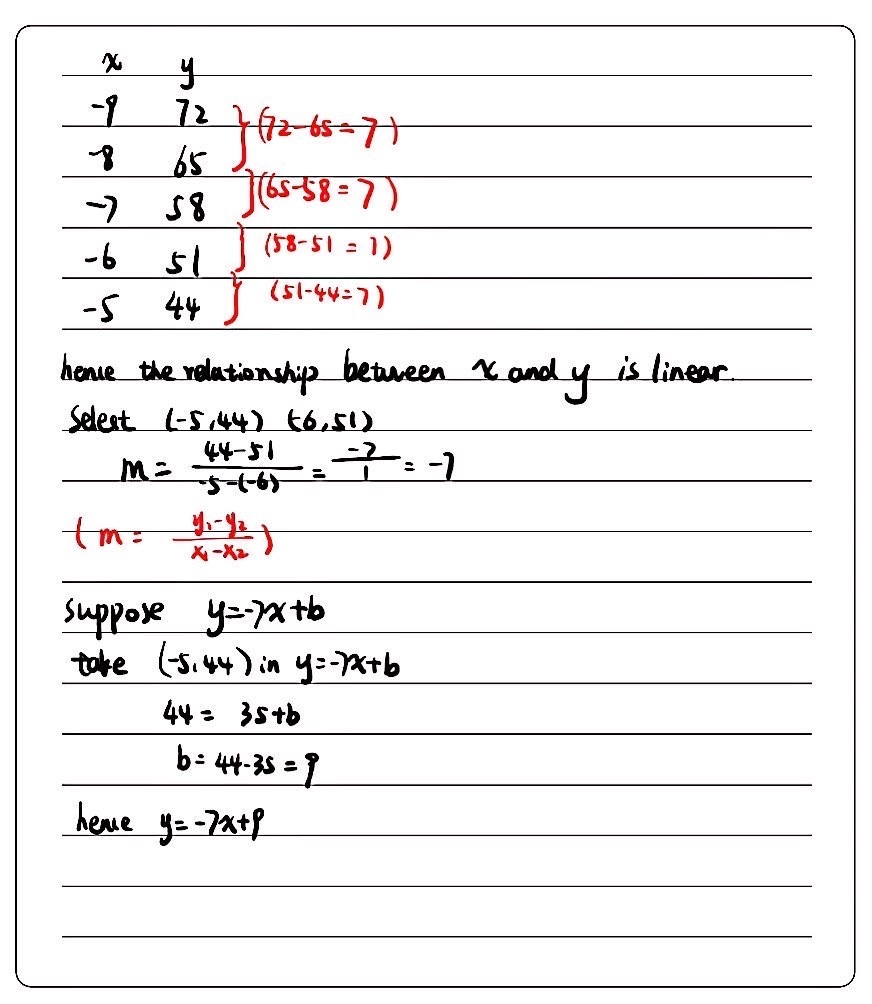 x y
-9 72
(72-65=7)
-8 65
(65-58=7)
-7 58
(58-51=7)
-6 51
(51-44=7)
-5 44
hence the relationship between x and y is linear.
Select (-5,44) (-6,51)
m = \frac{44-51}{-5-(-6)} = \frac{-7}{1} = -7
(m = \frac{y_1-y_2}{x_1-x_2})
suppose y=-7x+b
take (-5,44) in y=-7x+b
44 = 35+b
b = 44-35 = 9
hence y=-7x+9